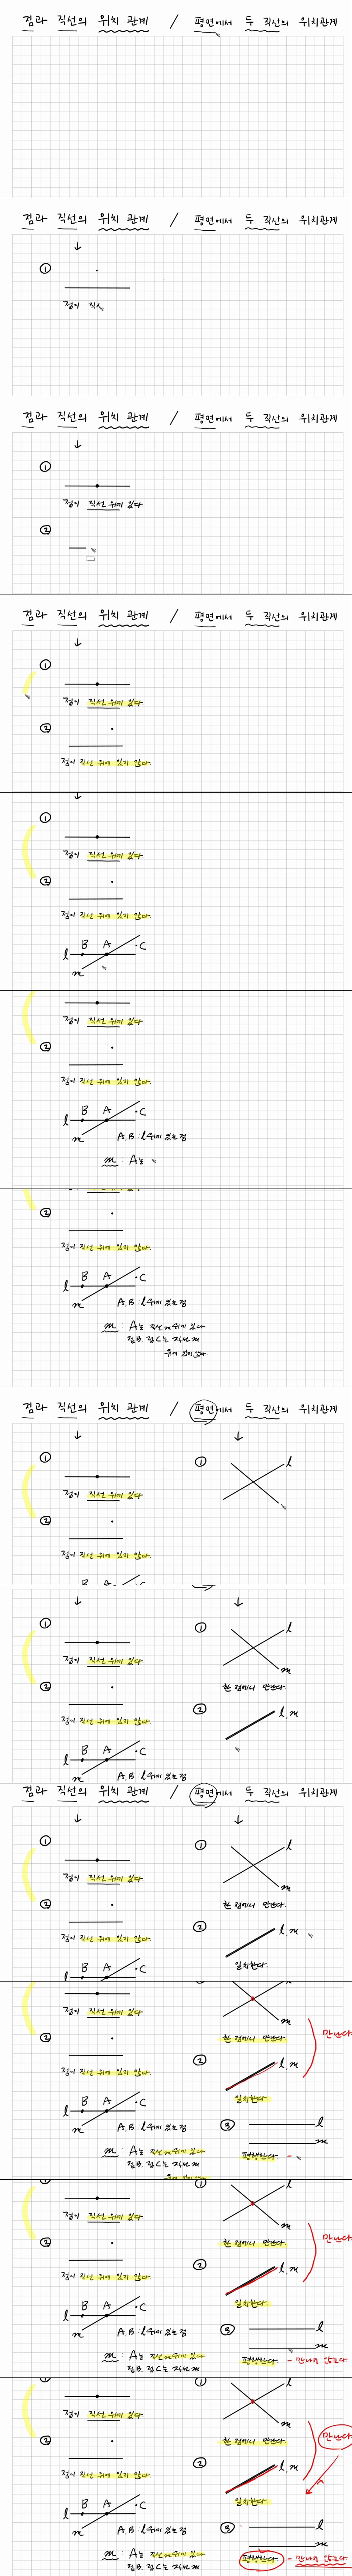 점과 직선의 위치 관계 / 평면에서 두 직선의 위치관계
점과 직선의 위치 관계 / 평면에서 두 직선의 위치관계
↓
①
점이 직
점과 직선의 위치 관계 / 평면에서 두 직선의 위치관계
↓
①
점이 직선 위에 있다.
②
점과 직선의 위치 관계 / 평면에서 두 직선의 위치관계
↓
①
점이 직선 위에 있다.
②
점이 직선 위에 있지 않다.
↓
①
점이 직선 위에 있다.
②
점이 직선 위에 있지 않다.
l B A C
m
점이 직선 위에 있다.
②
점이 직선 위에 있지 않다.
l B A C
m A, B : l 위에 있는 점
m : A는
②
점이 직선 위에 있지 않다.
l B A C
m A, B : l 위에 있는 점
m : A는 직선 m 위에 있다
점B, 점C는 직선 m
위에 있지 않다.
점과 직선의 위치 관계 / 평면에서 두 직선의 위치관계
↓ ↓
① ① l
점이 직선 위에 있다.
②
점이 직선 위에 있지 않다.
B A C
↓ ↓
① ① l
m
점이 직선 위에 있다. 한 점에서 만난다.
② ② l, m
점이 직선 위에 있지 않다.
l B A C
m A, B : l 위에 있는 점
점과 직선의 위치 관계 / 평면에서 두 직선의 위치관계
↓ ↓
① ① l
m
점이 직선 위에 있다. 한 점에서 만난다.
② ② l, m
점이 직선 위에 있지 않다. 일치한다.
l B A C
m A, B : l 위에 있는 점
① l
m
점이 직선 위에 있다. 한 점에서 만난다. 만난다
② ② l, m
점이 직선 위에 있지 않다. 일치한다.
l B A C ③ l
m A, B : l 위에 있는 점 m
m : A는 직선 m 위에 있다 평행한다. -
점B, 점C는 직선 m
위에 있지 않다.
① l
m
점이 직선 위에 있다. 한 점에서 만난다. 만난다
② ② l, m
점이 직선 위에 있지 않다. 일치한다.
l B A C ③ l
m A, B : l 위에 있는 점 m
m : A는 직선 m 위에 있다 평행한다. - 만나지 않는다
점B, 점C는 직선 m
① l
m
점이 직선 위에 있다. 한 점에서 만난다. 만난다
② ② l, m
점이 직선 위에 있지 않다. 일치한다.
l B A C ③ l
m A, B : l 위에 있는 점 m
m : A는 직선 m 위에 있다 평행한다. - 만나지 않는다
점B, 점C는 직선 m